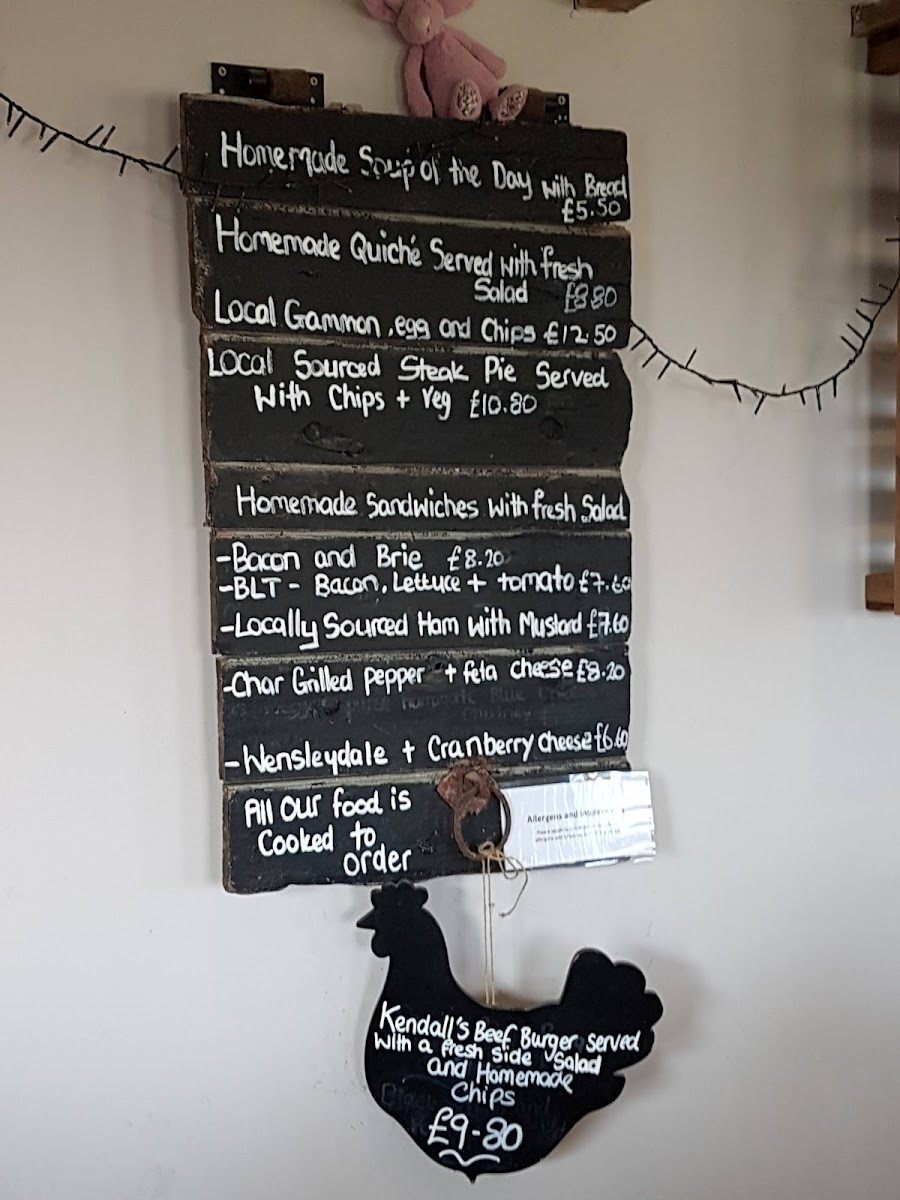 Homemade Soup of the Day with Bread
£5.50
Homemade Quiché Served with fresh
Salad £8.80
Local Gammon, egg and Chips £12.50
Local Sourced Steak Pie Served
With Chips + Veg £10.80
Homemade Sandwiches with fresh Salad
-Bacon and Brie £8.20
-BLT - Bacon, Lettuce + tomato £7.60
-Locally Sourced Ham with Mustard £7.60
-Char Grilled pepper + feta cheese £8.20
-Wensleydale + Cranberry Cheese £6.60
All our food is
Cooked to
order
Allergens and
Kendall's Beef Burger served
with a fresh side salad
and Homemade
Chips
£9-80